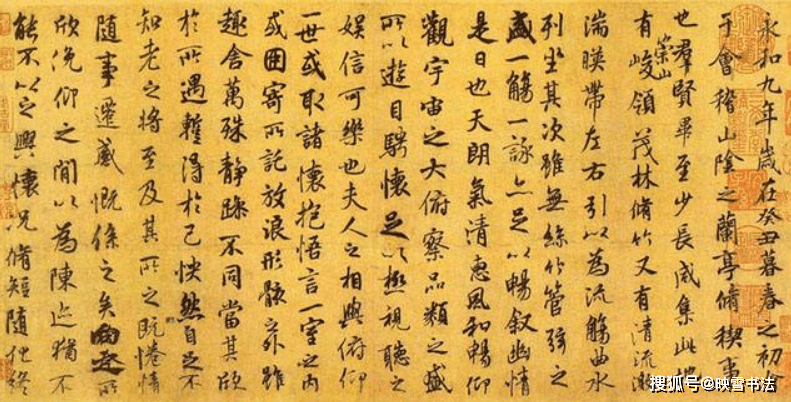 永和九年歲在癸丑暮春之初會
于會稽山陰之蘭亭脩稧事
也羣賢畢至少長咸集此地
有崇山峻領茂林脩竹又有清流激
湍暎帶左右引以為流觴曲水
列坐其次雖無絲竹管弦之
盛一觴一詠亦足以暢敘幽情
是日也天朗氣清惠風和暢仰
觀宇宙之大俯察品類之盛
所以遊目騁懷足以極視聽之
娛信可樂也夫人之相與俯仰
一世或取諸懷抱悟言一室之內
或因寄所託放浪形骸之外雖
趣舍萬殊静躁不同當其欣
於所遇蹔得於己怏然自足不
知老之將至及其所之既惓情
隨事遷感慨係之矣向之所
欣俛仰之閒以為陳迹猶不
能不以之興懷況脩短隨化終
搜狐号@映雪书法